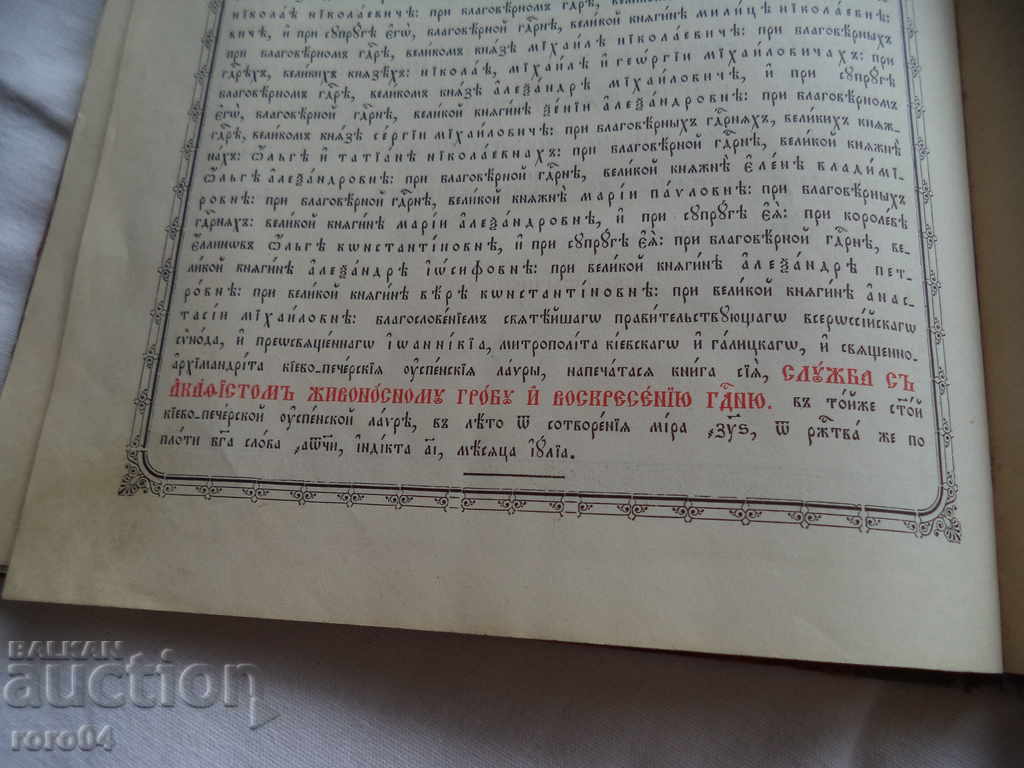 нїкола́ѣ нїкола́евичѣ: при благовѣ́рномъ гдⷭ҇рѣ, вели́комъ
вичѣ, и҆ при сꙋпрꙋ́гѣ є҆гѡ̀, благовѣ́рной гдⷭ҇рнѣ, вели́кой кнѧги́нѣ мили́цѣ нїкола́евнѣ:
при благовѣ́рномъ гдⷭ҇рѣ, вели́комъ кнѧ́зѣ мїхаи́лѣ нїкола́евичѣ: при благовѣ́рныхъ
гдⷭ҇рѣхъ, вели́кихъ кнѧ́зѣхъ: нїкола́ѣ, мїхаи́лѣ и҆ геѡ́ргїи мїха́иловичахъ: при
благовѣ́рномъ гдⷭ҇рѣ, вели́комъ кнѧ́зѣ а҆леѯа́ндрѣ мїха́иловичѣ, и҆ при сꙋпрꙋ́гѣ
є҆гѡ̀, благовѣ́рной гдⷭ҇рнѣ, вели́кой кнѧги́нѣ ѯе́нїи а҆леѯа́ндровнѣ: при благовѣ́рномъ
гдⷭ҇рѣ, вели́комъ кнѧ́зѣ се́ргїи мїха́иловичѣ: при благовѣ́рныхъ гдⷭ҇рнѧхъ, вели́кихъ кнѧж-
на́хъ: ѻ҆́льгѣ и҆ татїа́нѣ нїкола́евнахъ: при благовѣ́рной гдⷭ҇рнѣ, вели́кой кнѧжнѣ̀
ѻ҆́льгѣ а҆леѯа́ндровнѣ: при благовѣ́рной гдⷭ҇рнѣ, вели́кой кнѧжнѣ̀ є҆ле́нѣ влади́мї-
ровнѣ: при благовѣ́рной гдⷭ҇рнѣ, вели́кой кнѧжнѣ̀ марі́и па́ѵловнѣ: при благовѣ́рныхъ
гдⷭ҇рнѧхъ: вели́кой кнѧги́нѣ марі́и а҆леѯа́ндровнѣ, и҆ при сꙋпрꙋ́гѣ є҆ѧ̀: при короле́вѣ
є҆́ллинѡвъ ѻ҆́льгѣ кѡнстанті́новнѣ, и҆ при сꙋпрꙋ́гѣ є҆ѧ̀: при благовѣ́рной гдⷭ҇рнѣ, ве-
ли́кой кнѧги́нѣ а҆леѯа́ндрѣ і҆ѡ́сифовнѣ: при вели́кой кнѧги́нѣ а҆леѯа́ндрѣ пет-
ро́внѣ: при вели́кой кнѧги́нѣ вѣ́рѣ кѡнстанті́новнѣ: при вели́кой кнѧги́нѣ а҆нас-
тасі́и мїха́иловнѣ: благослове́нїемъ свѧтѣ́йшагѡ прави́тельствꙋющагѡ всерѡссі́йскагѡ
сѷно́да, и҆ преѡсвѧще́ннагѡ і҆ѡанні́кїа, митрополі́та кі́евскагѡ и҆ га́лицкагѡ, и҆ свѧще́нно-
а҆рхїмандрі́та кі́ево-пече́рскїѧ ᲂу҆спе́нскїѧ ла́ѵры, напеча́тасѧ кни́га сїѧ̀, слꙋ́жба съ
а҆ка́ѳїстомъ живоно́сномꙋ гро́бꙋ и҆ воскресе́нїю гдⷭ҇ню. въ то́йже ст҃о́й
кі́ево-пече́рской ᲂу҆спе́нской ла́ѵрѣ, въ лѣ́то ѿ сотворе́нїѧ мі́ра ҂зу҃ѕ, ѿ ржⷭ҇тва̀ же по
пло́ти бг҃а сло́ва ҂аѡч҃и, і҆ндікта а҃і, мѣ́сѧца і҆ꙋ́лїа.
BALKAN
auction
roro04